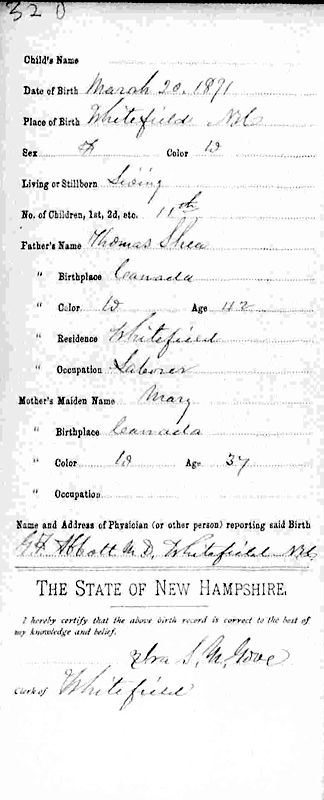 320
Child's Name
Date of Birth March 20, 1891
Place of Birth Whitefield N.H.
Sex F Color W
Living or Stillborn Living
No. of Children, 1st, 2d, etc. 11th
Father's Name Thomas Shea
" Birthplace Canada
" Color W Age 42
" Residence Whitefield
" Occupation Laborer
Mother's Maiden Name Mary
" Birthplace Canada
" Color W Age 37
" Occupation
Name and Address of Physician (or other person) reporting said Birth
Abbott M.D. Whitefield N.H.
THE STATE OF NEW HAMPSHIRE.
I hereby certify that the above birth record is correct to the best of
my knowledge and belief.
Clerk of Whitefield